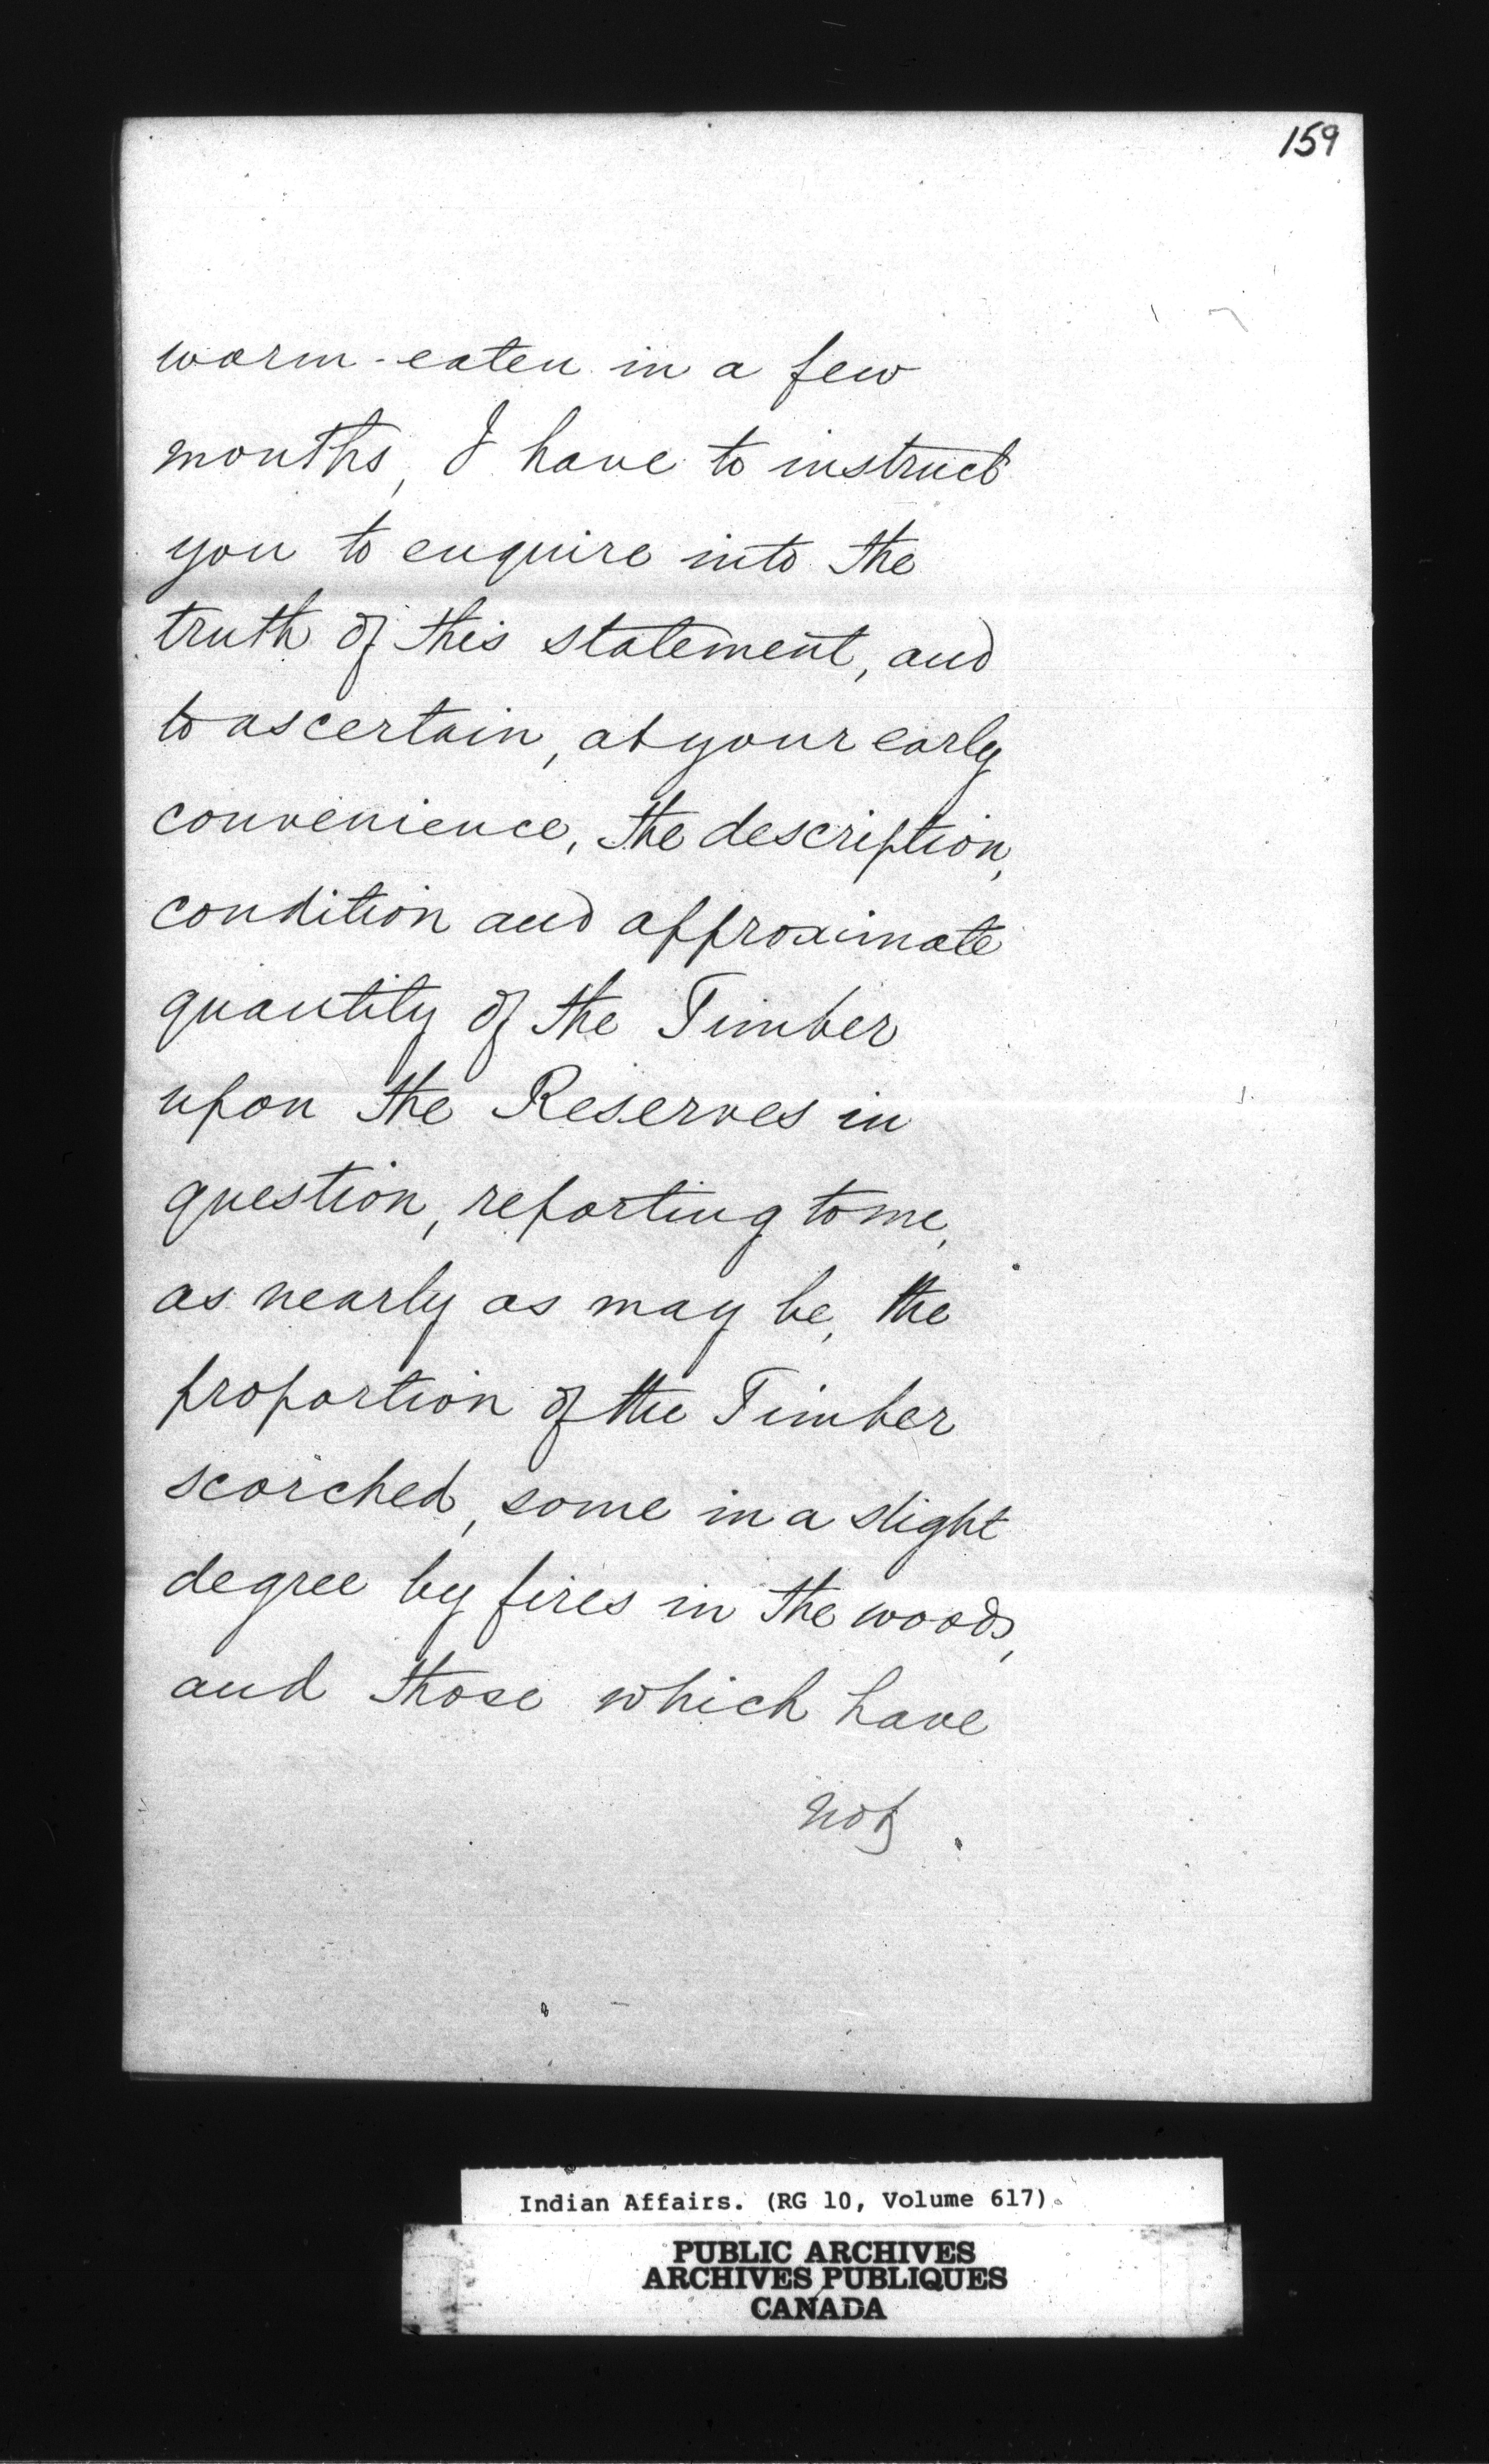 159
worm-eaten in a few
months, I have to instruct
you to enquire into the
truth of this statement, and
to ascertain, at your early
convenience, the description,
condition and approximate
quantity of the Timber
upon the Reserves in
question, reporting to me,
as nearly as may be, the
proportion of the Timber
scorched, some in a slight
degree by fires in the woods,
and those which have
not
Indian Affairs. (RG 10, Volume 617)
PUBLIC ARCHIVES
ARCHIVES PUBLIQUES
CANADA